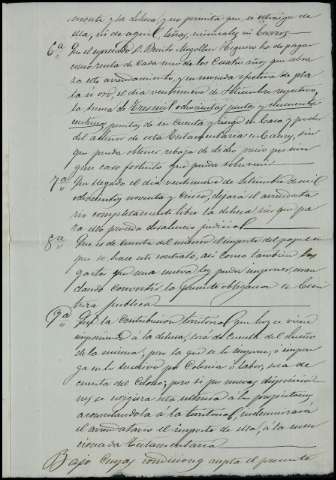 mente, y la dehesa, y no permita que se extraiga de
ella, ni de agua, leñas, minerales, ni
6ª Que el expresado D. Benito Mogollon Higuero ha de pagar
como renta de cada uno de los cuatro años, que abra-
za este arrendamiento, y en moneda efectiva de pla-
ta ú oro, el dia veintinueve de Setiembre respectivo,
la suma de tres mil ochocientas pesetas y cincuenta
centimos, puestas de su cuenta y riesgo en Casa y poder
del albacea de esta Testamentaria en Caceres, sin
que pueda obtener rebaja de dicho precio por nin-
gun caso fortuito que pueda sobrevenir
7ª Que llegado el dia veintinueve de Setiembre de mil
ochocientos noventa y cinco, dejará el arrendatario
completamente libre la dehesa sin que pa-
ra esto preceda desahucio judicial
8ª Que es de cuenta del mismo el importe del papel en
que se hace este contrato, asi como tambien los
gastos que una nueva ley pueda imponer, man-
dando convertir la presente obligacion en Escri-
tura publica
9ª Que la Contribucion territorial que hoy se viene
imponiendo á la dehesa, será de cuenta del dueño
de la misma; pero la que se le impone, ó impon-
ga en lo sucesivo por Colonia ó labor, será de
cuenta del Colono; pero si por nuevas disposicio-
nes se exigiera esta ultima á los propietarios,
acumulandola á la territorial, indemnizará
el arrendatario el importe de ella, á la men-
cionada Testamentaria
Bajo cuyas condiciones acepta el presente